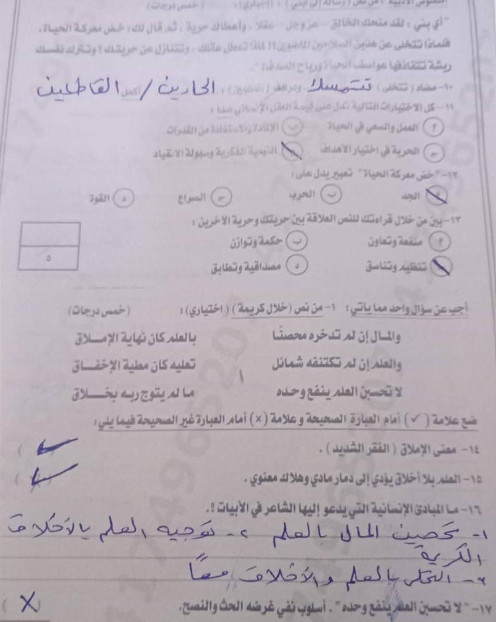 "أي بني : لقد منحك الخالق - عزوجل - عقلاً ، وأعطاك حرية ، ثم قال لك: خض معركة الحياة.
فلماذا تتخلى عن هذين السلاحين الماضيين؟! لماذا تعطل عقلك ، وتتنازل عن حريتك! وتترك نفسك
ريشة تتقاذفها عواصف الحياة ورياح الصدفة؟"
١٠- مضاد (تتخلى) تتمسك ومرادف الحادين / القاطعين
١١- كل الاختيارات التالية تدل على قيمة العقل الإنساني عدا :
أ العمل والسعي في الحياة ب الإفادة والاستفادة من القدرات
ج الحرية في اختيار الأهداف د التبعية الفكرية وسهولة الانقياد
١٢- "خض معركة الحياة" تعبير يدل على :
أ الجد ب الحرب ج الصراع د القوة
١٣- بين من خلال قراءتك للنص العلاقة بين حريتك وحرية الآخرين :
أ منفعة وتعاون ب حكمة وتوازن
ج تنظيم وتناسق د مصداقية وتطابق
٥
أجب عن سؤال واحد مما يأتي : ١- من نص (خلال كريمة) (اختياري) : (خمس درجات)
والمال إن لم تدخره محصنًا بالعلم كان نهاية الإملاق
والعلم إن لم تكتنفه شمائل تعليه كان مطية الإخفاق
لا تحسبن العلم ينفع وحده ما لم يتوج ربه بخلاق
ضع علامة (✓) أمام العبارة الصحيحة و علامة (×) أمام العبارة غير الصحيحة فيما يلي:
١٤- معنى الإملاق (الفقر الشديد) . ( ✓ )
١٥- العلم بلا أخلاق يؤدي إلى دمار مادي وهلاك معنوي . ( ✓ )
١٦- ما المبادئ الإنسانية التي يدعو إليها الشاعر في الأبيات ؟.
١- تحصين المال بالعلم ٢- توجيه العلم بالأخلاق
الكريمة
٣- التحلي بالعلم والأخلاق معًا
١٧- "لا تحسبن العلم ينفع وحده" . أسلوب نفي غرضه الحث والنصح. ( X )